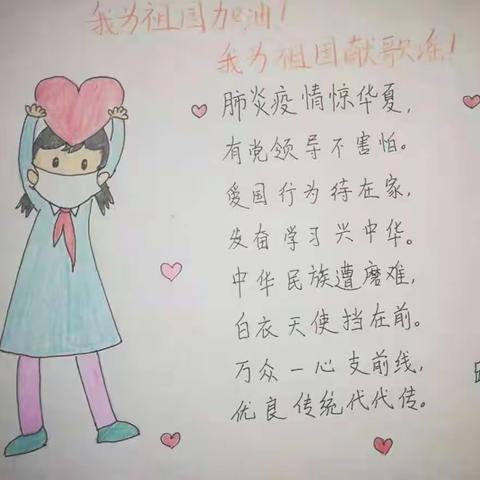 我为祖国加油！
我为祖国献歌谣！
肺炎疫情惊华夏，
有党领导不害怕。
爱国行为待在家，
发奋学习兴中华。
中华民族遭磨难，
白衣天使挡在前。
万众一心支前线，
优良传统代代传。